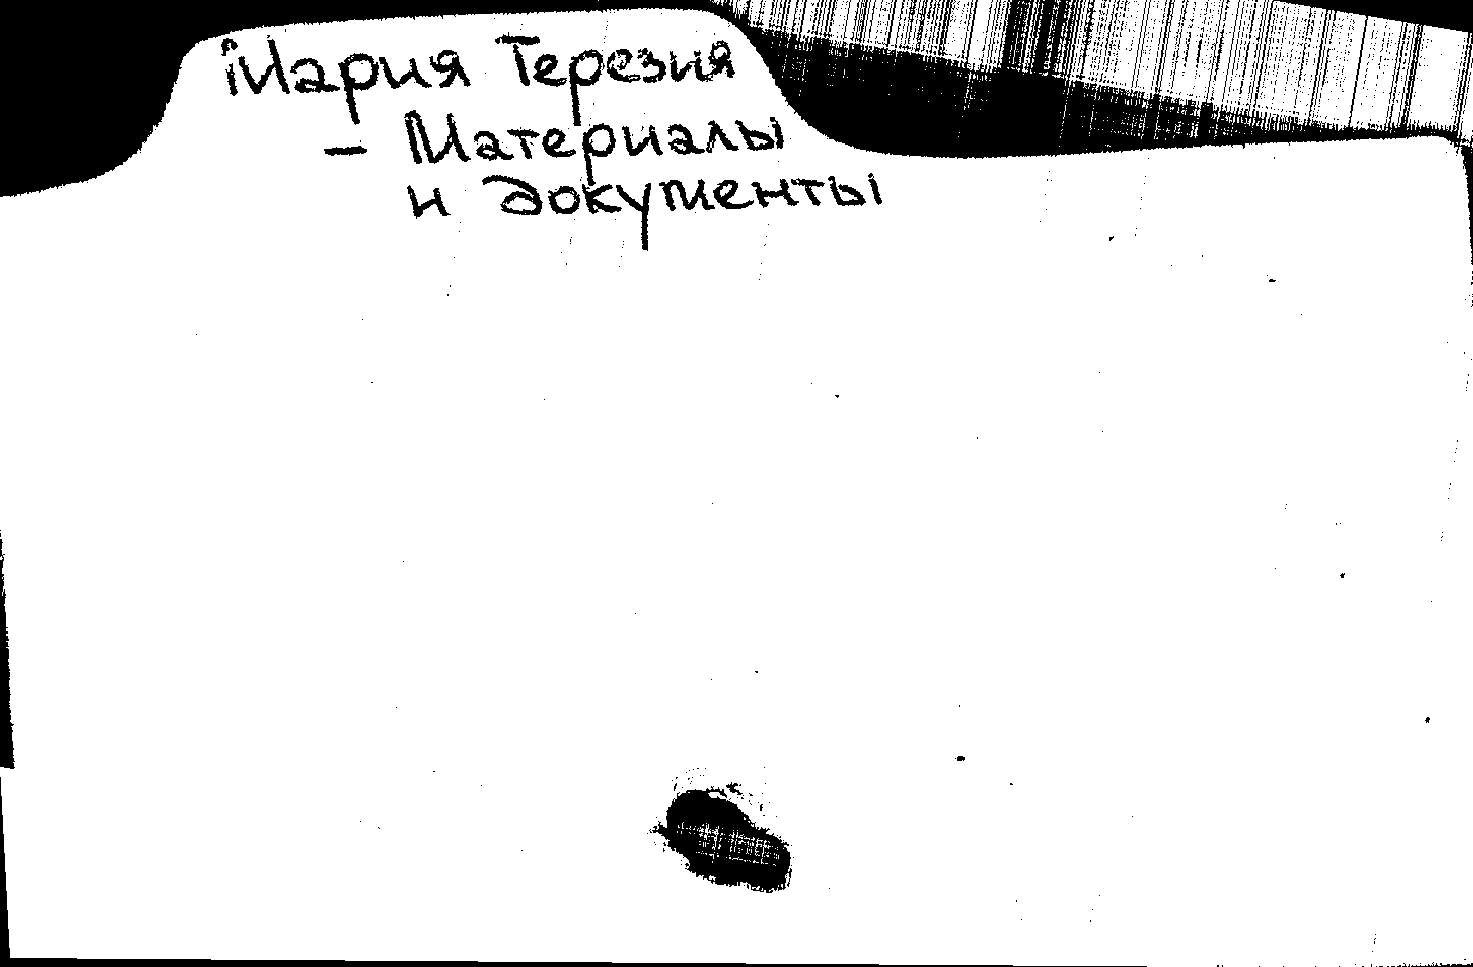 Мария Терезия
- Материалы
и документы